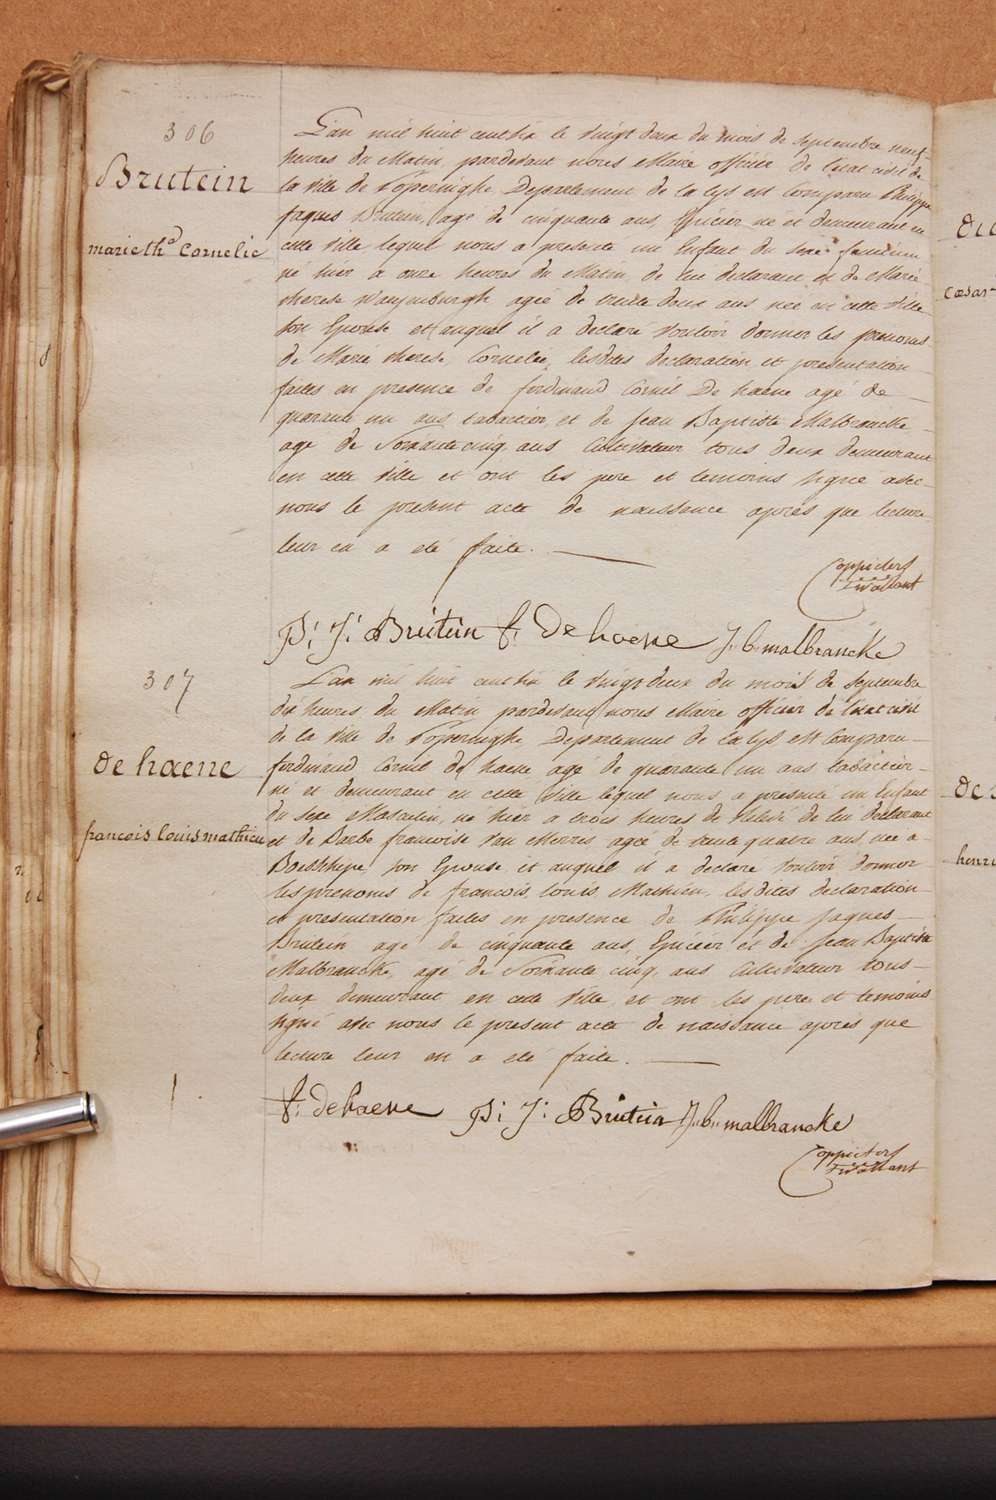 306
Brutein
marie th.e Cornelie
L'an mil huit cent dix le vingt deux du mois de septembre neuf
heures du Matin, pardevant nous Maire officier de l'etat civil de
la ville de Poperinghe, Departement de la Lys est Comparu Philippe
jaques Brutein, agé de cinquante ans, Epicier né et demeurant en
cette ville lequel nous a presenté un Enfant du sexe feminin
né hier a onze heures du Matin de lui declarant et de Marie
therese agée de trente deux ans née en cette ville
son Epouse et auquel il a declaré vouloir donner les prenoms
de Marie therese Cornelie, lesdites declaration et presentation
faites en presence de ferdinand Cornil De haene agé de
quarante un ans, tabactier, et de Jean Baptiste Malbrancke
agé de Soixante cinq ans Cultivateur tous deux demeurant
en cette ville et ont les pere et temoins signé avec
nous le present acte de naissance après que lecture
leur en a eté faite.
Coppieters
P: J: Brutein f: De haene J: b: malbrancke
307
de haene
francois louis mathieu
L'an mil huit cent dix le vingt deux du mois de septembre
dix heures du Matin pardevant nous Maire officier de l'etat civil
de la ville de Poperinghe, Departement de la Lys est Comparu
ferdinand Cornil de haene agé de quarante un ans tabactier
né et demeurant en cette ville lequel nous a presenté un Enfant
du sexe Masculin, né hier a trois heures de de lui declarant
et de Barbe francoise Van Merris agée de trente quatre ans, née a
son Epouse et auquel il a declaré vouloir donner
les prenoms de francois, louis, Mathieu, lesdites declaration
et presentation faites en presence de Philippe Jaques
Brutein agé de cinquante ans, Epicier et de Jean Baptiste
Malbrancke, agé de Soixante cinq ans Cultivateur tous
deux demeurant en cette ville, et ont les pere et temoins
signé avec nous le present acte de naissance après que
lecture leur en a eté faite.
f: de haene P: J: Brutein J: b: malbrancke
Coppieters